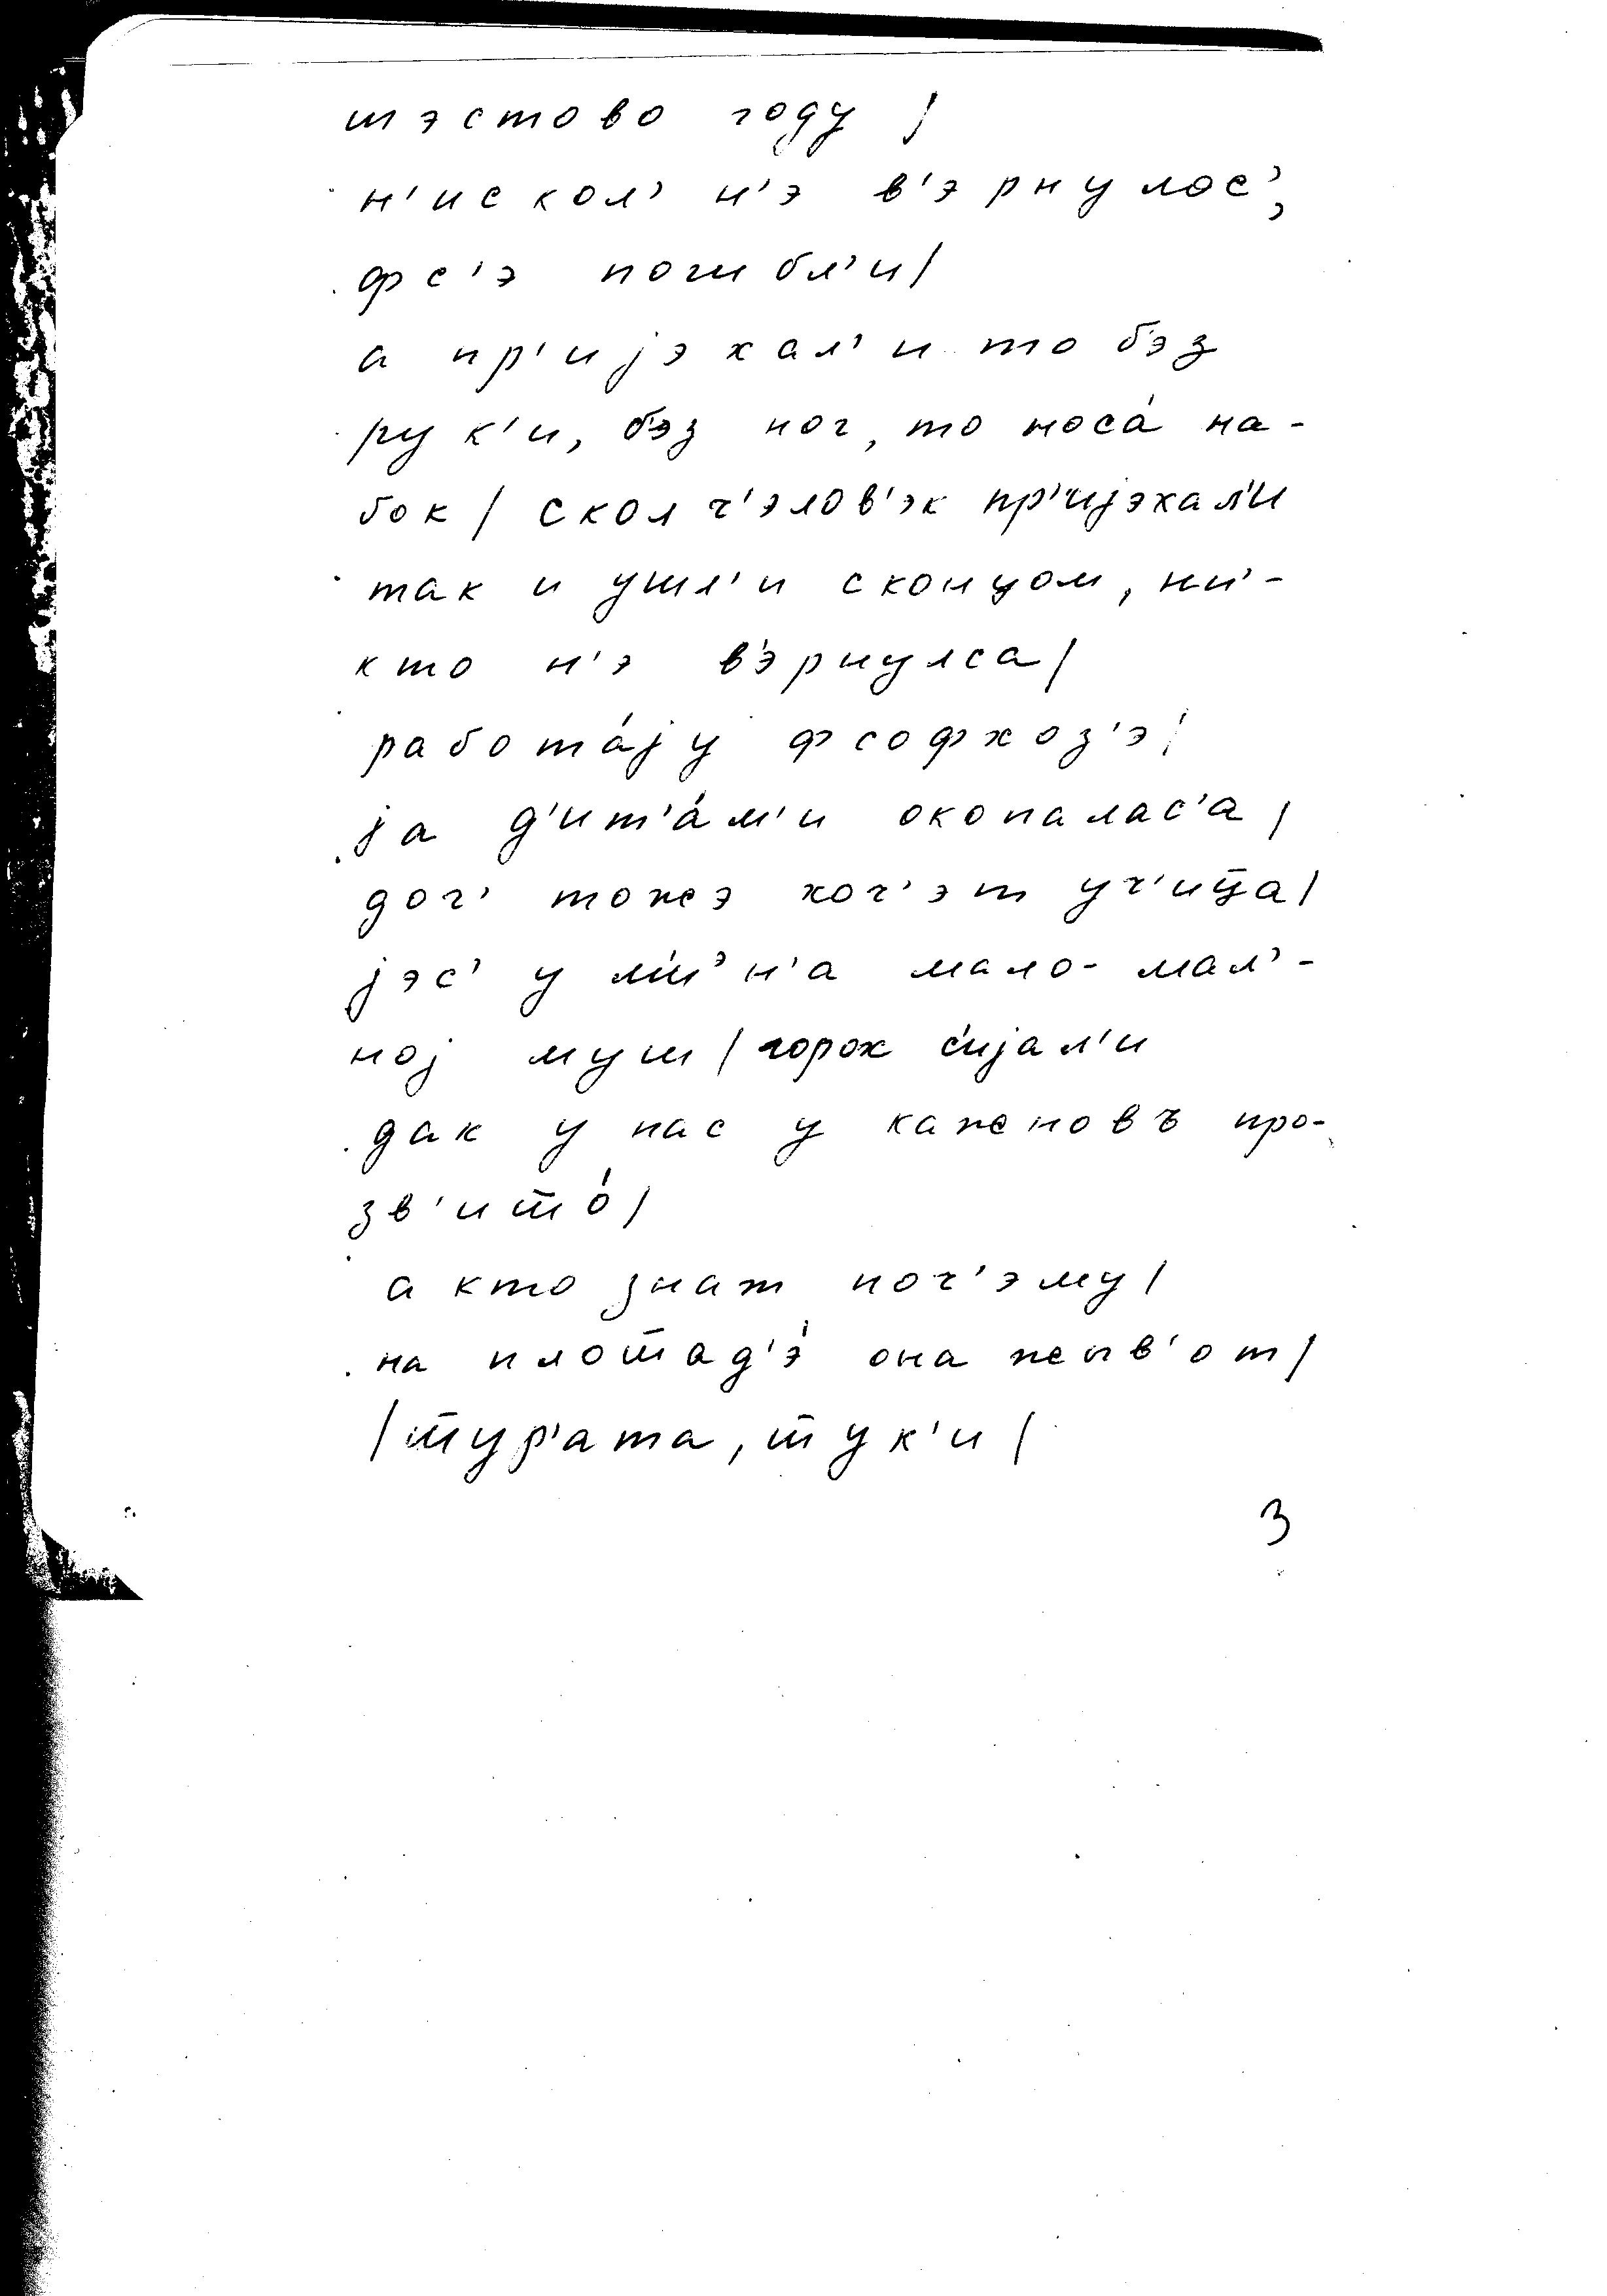 шэстово году /
н'искол' н'э в'эрнулос',
фс'э погибл'и/
а пр'иjэхал'и то бэз
рук'и, бэз ног, то носа́ на-
бок / скол ч'элов'эк пр'иjэхал'и
так и ушл'и сконцом, ни'-
кто н'э в'эрнулса/
рабoта́jу фсофхоз'э/
jа д'ит'а́м'и окопалас'а /
доч' тожэ хоч'эт уч'ицца/
jэс' у м'иэн'а мало-мал'-
ноj муш / горох с'иjал'и
дак у нас у кажновъ про-
зв'ишшо́/
а кто знат поч'эму/
на плошшад'э́ она жыв'от/
/шшур'ата, шшук'и/
3